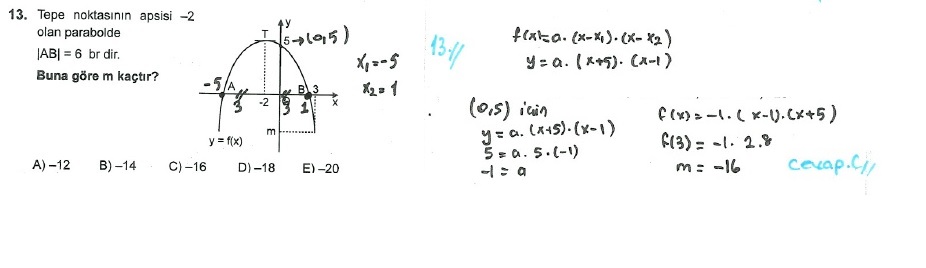 13. Tepe noktasının apsisi –2
olan parabolde
|AB| = 6 br dir.
Buna göre m kaçtır?
y
T
5→(0,5)
-5
A
B
3
3
-2
3
1
x
m
y = f(x)
x₁=-5
x₂=1
A) –12 B) –14 C) –16 D) –18 E) –20
13.//
f(x)=a.(x-x₁).(x-x₂)
y=a.(x+5).(x-1)
(0,5) için
y=a.(x+5).(x-1)
5=a.5.(-1)
-1=a
f(x)=-1.(x-1).(x+5)
f(3)=-1.2.8
m=-16
cevap.C//